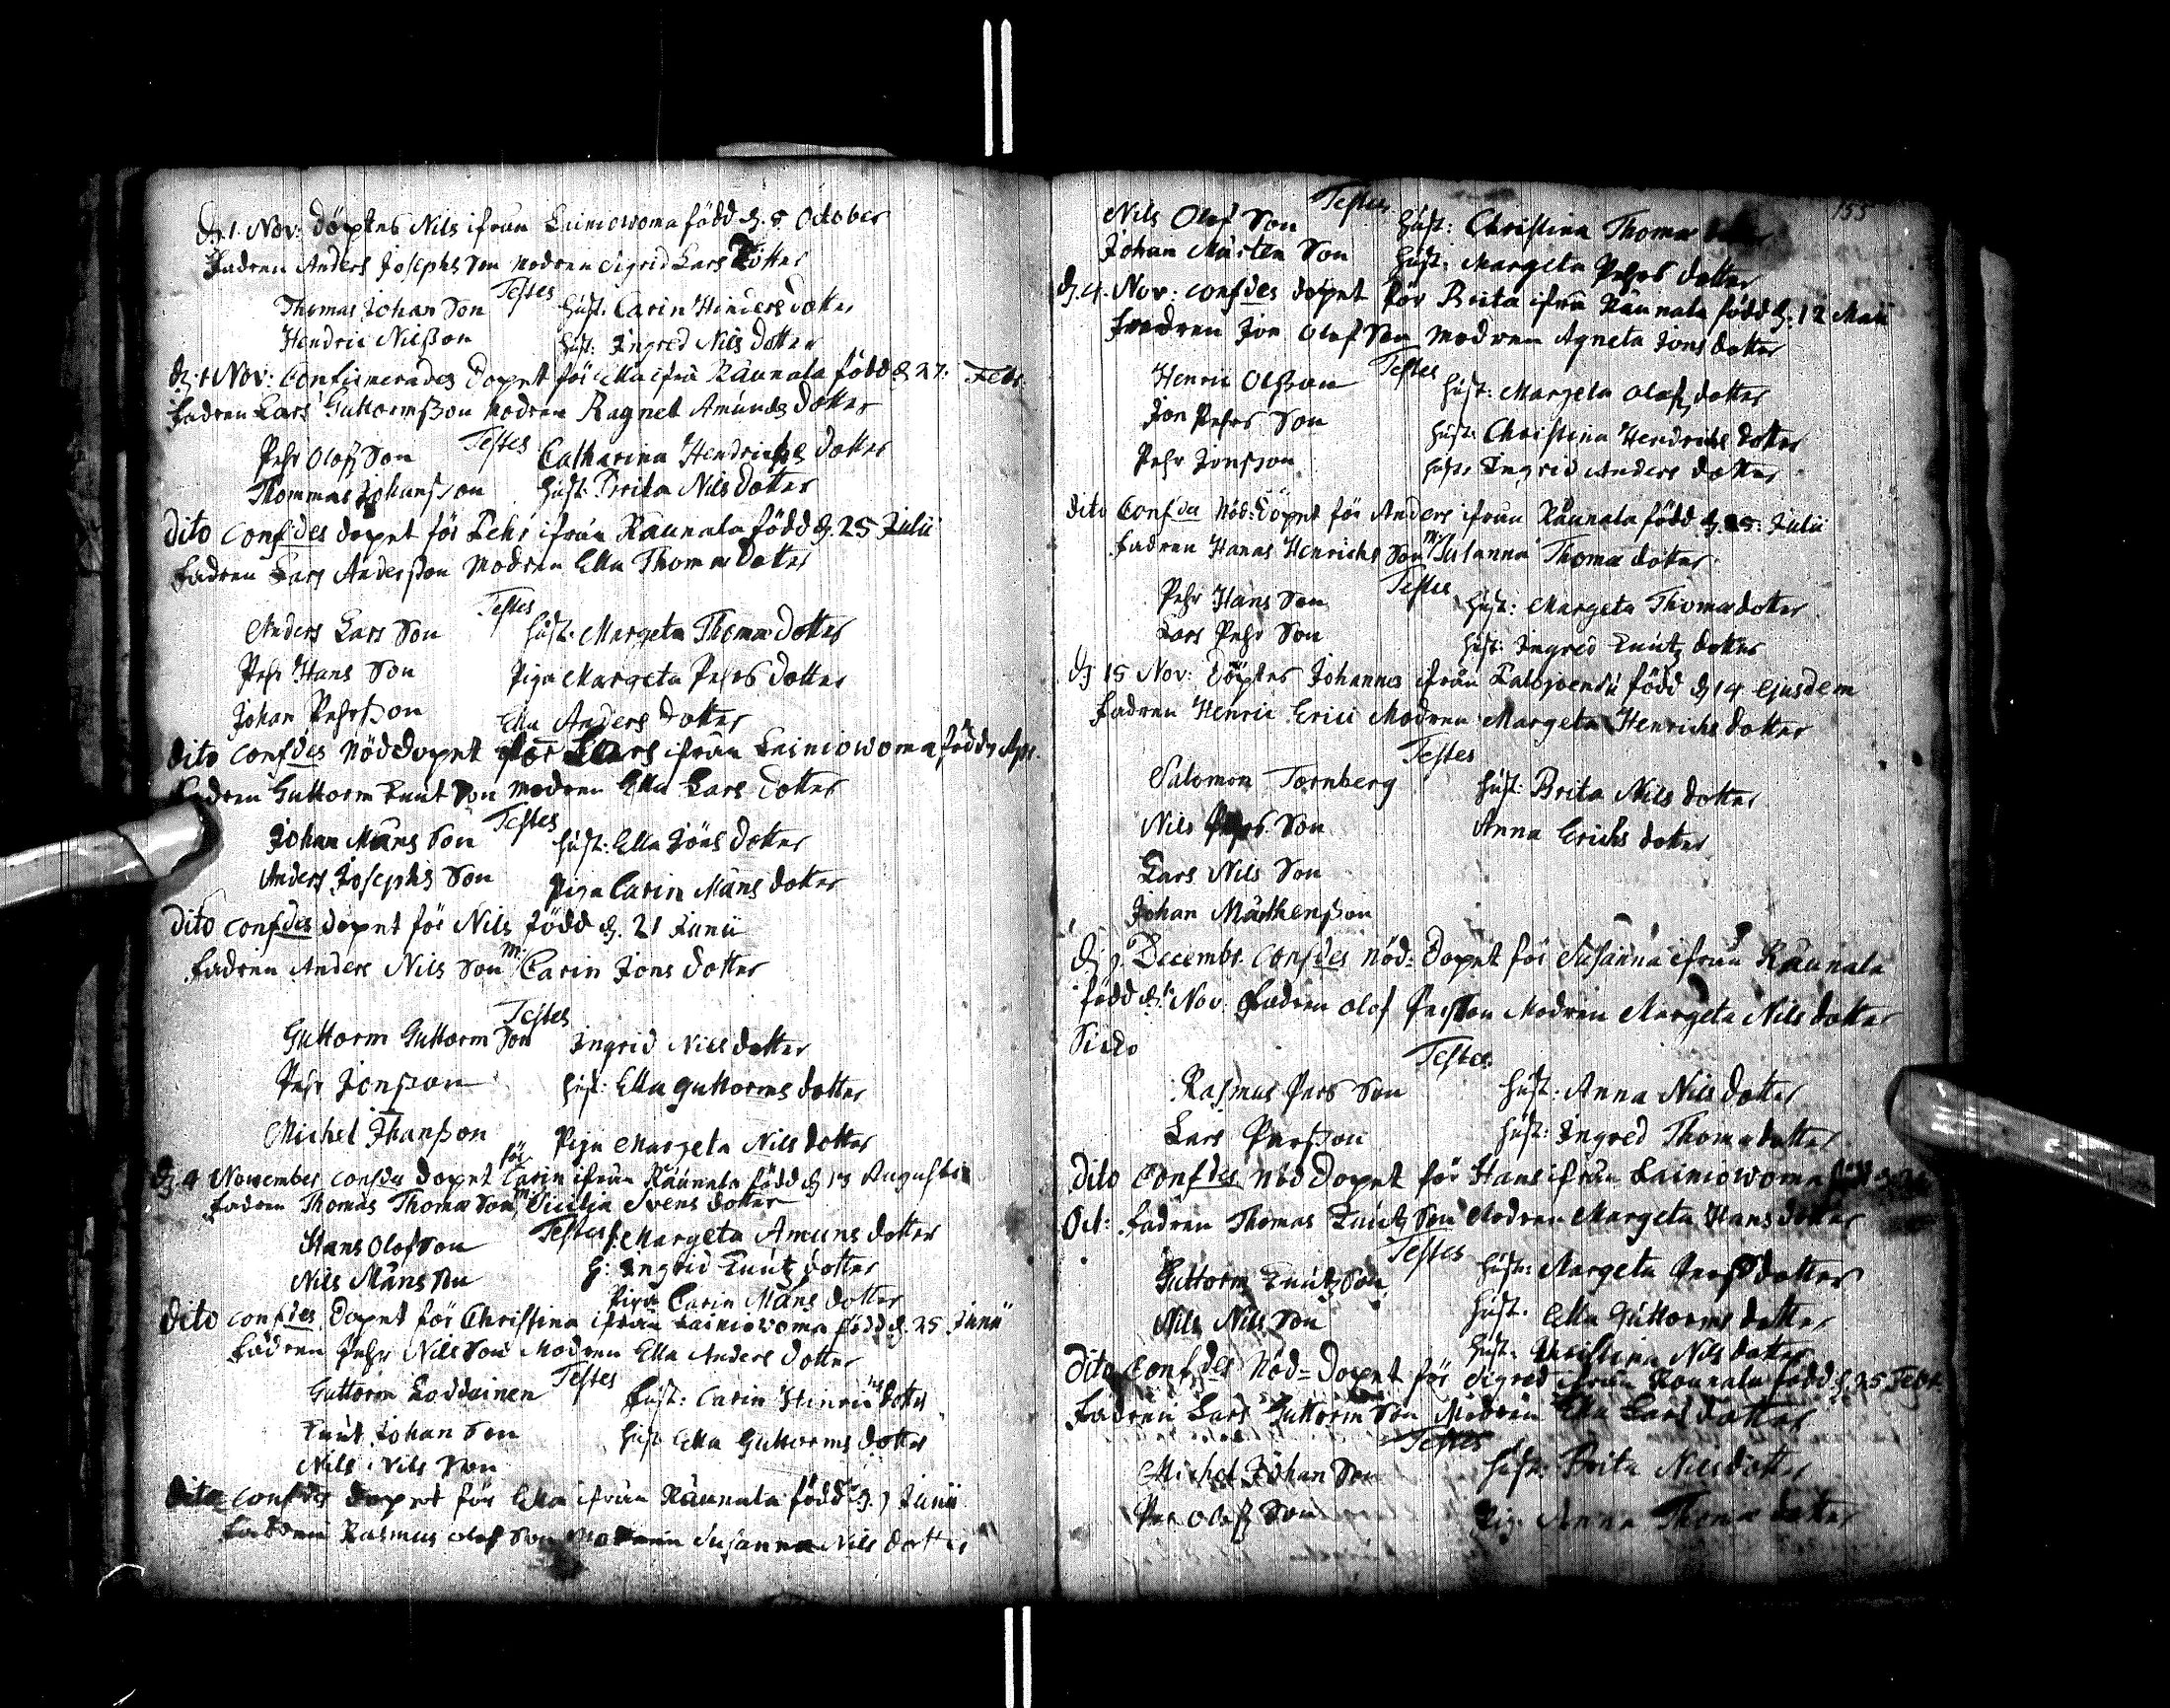 d. 1. Nov: döptes Nils ifrån Lainiowoma född d. 8 October
Fadren Anders Josephs Son Modren Sigrid Lars Dotter
Testes
Thomas Johan Son Hust: Carin Hinders dotter
Hendric Nilsson Hust: Ingred Nils dotter
d. 1 Nov: Confirmerades dopet för Ella ifrå Raunala född d 27. Febr.
Fadren Lars Guttormsson Modren Ragnel Amunds dotter
Testes
Pehr Olofs Son Catharina Hendrichs dotter
Thommas Johansson Hust: Brita Nils dotter
Dito confdes dopet för Pehr ifrån Raunala född d. 25 Julii
Fadren Lars Andersson Modren Ella Thomæ dotter
Testes
Anders Lars Son Hust: Margeta Thomæ dotter
Pehr Hans Son Piga Margeta Pehrs dotter
Johan Pehrsson Ella Anders dotter
Dito confdes Nöddopet för Lars ifrån Lainiowoma född Apr.
Fadren Guttorm Knut Son Modren Ella Lars dotter
Testes
Johan Måns Son Hust: Ella Jöns dotter
Anders Josephs Son Piga Carin Måns dotter
Dito confdes dopet för Nils född d. 21 Junii
Fadren Anders Nils Son M: Carin Jons dotter
Testes
Guttorm Guttorm Son Ingrid Nils dotter
Pehr Jonsson Hust: Ella Guttorms dotter
Michel Jhansson Piga Margeta Nils dotter
d. 4 November confda dopet för Carin ifrån Raunala född d 13 Augusti
Fadren Thomas Thomæ Son M: Sicilia Svens dotter
Testes
Hans Olofson H. Margeta Amuns dotter
Nils Månsson H: Ingrid Knutz dotter
Piga Carin Måns dotter
Dito confdes Dopet för Christina ifrån Lainiowoma född d. 25 Junii
Fadren Pehr Nils Son Modren Ella Anders dotter
Testes
Guttorm Koddainen Hust: Carin Hinrichs dotter
Knut Johan Son Hust Ella Guttorms dotter
Nils Nils Son
Dito confdes dopet för Ella ifrån Raunala född d. 7 Junii
Fadren Rasmus Olof Son Modren Susanna Nils dotter
155
Testes
Nils Olof Son Hust: Christina Thomæ dotter
Johan Mårten Son Hust: Margeta Pehrs dotter
d. 4. Nov: confdes dopet för Brita ifrå Raunala född d. 12 Maii
Fadren Jon Olof Son Modren Agneta Jons dotter
Testes
Henric Olsson Hust: Margeta Olofs dotter
Jon Pehrs Son Hust: Christina Hendrichs dotter
Pehr Jonsson Hust: Ingrid Anders dotter
Dito Confda Nöd: Dopet för Anders ifrån Raunala född d. 25: Julii
Fadren Hanas Henrichs Son M: Susanna Thomæ dotter
Testes
Pehr Hans Son Hust: Margeta Thomæ dotter
Lars Pehr Son Hust: Ingred Knutz dotter
d 15 Nov: Döptes Johannes ifrån född d 14 ejusdem
Fadren Henric Erici Modren Margeta Henrichs dotter
Testes
Salomon Tornberg Hust: Brita Nils dotter
Nils Pehrs Son Anna Erichs dotter
Lars Nils Son
Johan Mårthensson
d. Decembr. Confdes nöd: Dopet för Susanna ifrån Raunala
född d. 1. Nov. Fadren Olof Persson Modren Margeta Nils dotter
Testes
Rasmus Pers Son Hust: Anna Nils dotter
Lars Persson Hust: Ingred Thomæ dotter
Dito Confdes Nöd Dopet för Hans ifrån Lainiowoma född d
Oct: Fadren Thomas Knutz Son Modren Margeta Hans dotter
Testes
Guttorm Knutz Son Hust: Margeta Pers dotter
Nils Nils Son Hust. Ella Guttorms dotter
Hust: Christina Nils dotter
Dito Confdes Nöd= Dopet för Sigred ifrån Raunala född d. 25 Febr.
Fadren Lars Guttorm Son Modren Ella Lars dotter
Testes
Michel Johan Son Hust: Brita Nils dotter
Per Olofs Son Pig: Anna Thomæ dotter